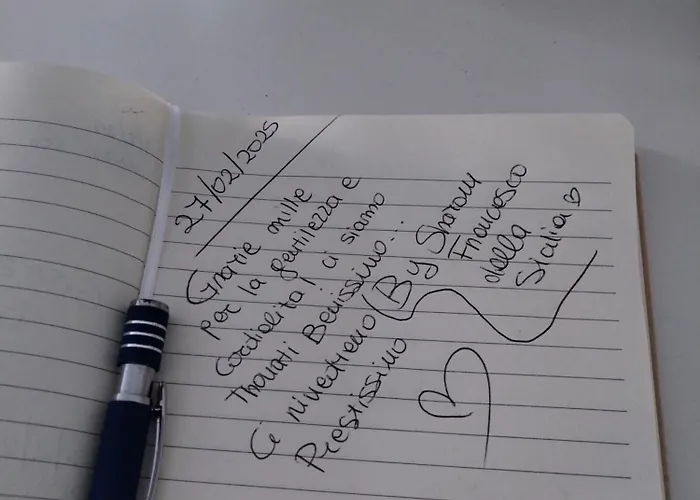 27/02/2025
Grazie mille
per la gentilezza e
Cordialità! ci siamo
trovati Benissimo...
Ci rivedremo
Prestissimo
By Sharon
Francesco
dalla
Sicilia